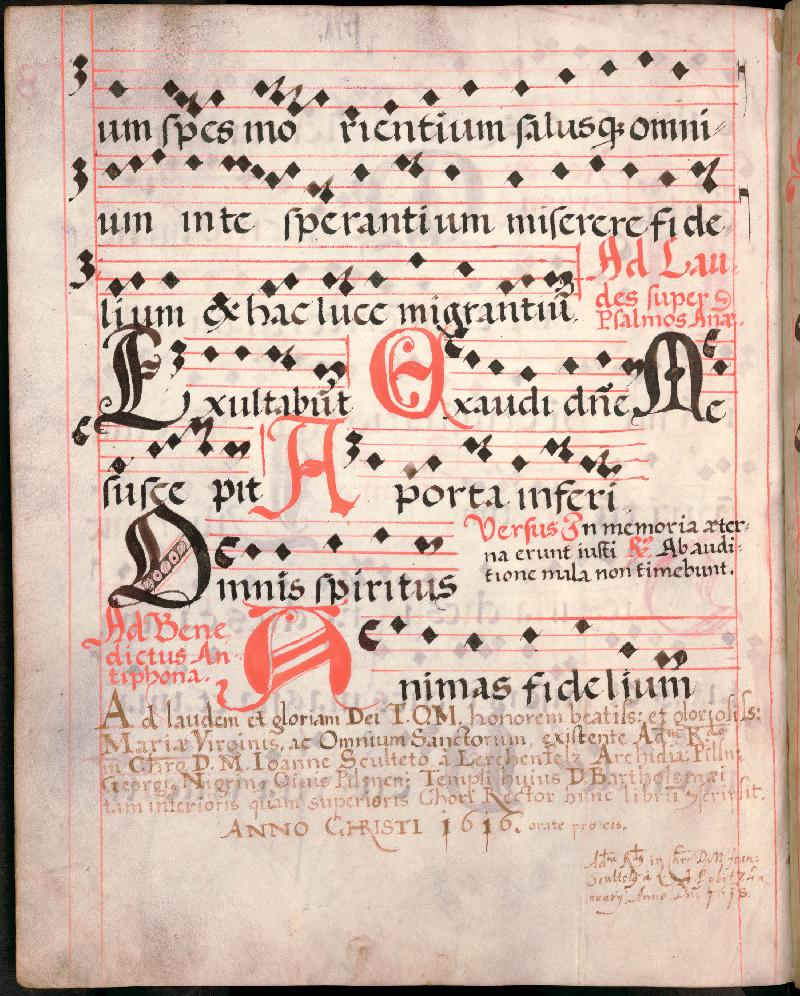 um spes mo rientium salusq; omni
um in te sperantium miserere fide
lium & hac luce migrantiū
Ad Lau
des super
Psalmos Anā.
Exultabūt Exaudi dn̄e Me
susce pit A porta inferi
Versus In memoria æter
na erunt iusti ℟. Ab audi
tione mala non timebunt.
Omnis spiritus
Ad Bene
dictus An
tiphona.
Animas fidelium
Ad laudem et gloriam Dei T.OM. honorem beatiss: et gloriosiss:
Mariæ Virginis, ac Omnium Sanctorum, existente
in Chro D. M. Ioanne Sculteto à Lerchenfelz Archidia:
Georgi, Nigrino Ciuis Pilsnen: Templi huius D. Bartholomæi
tam inferioris quam superioris Chori Rector hunc librū scripsit.
ANNO CHRISTI 1616. orate pro eis.
in Chro D. M. Ioan:
Anno 1618.